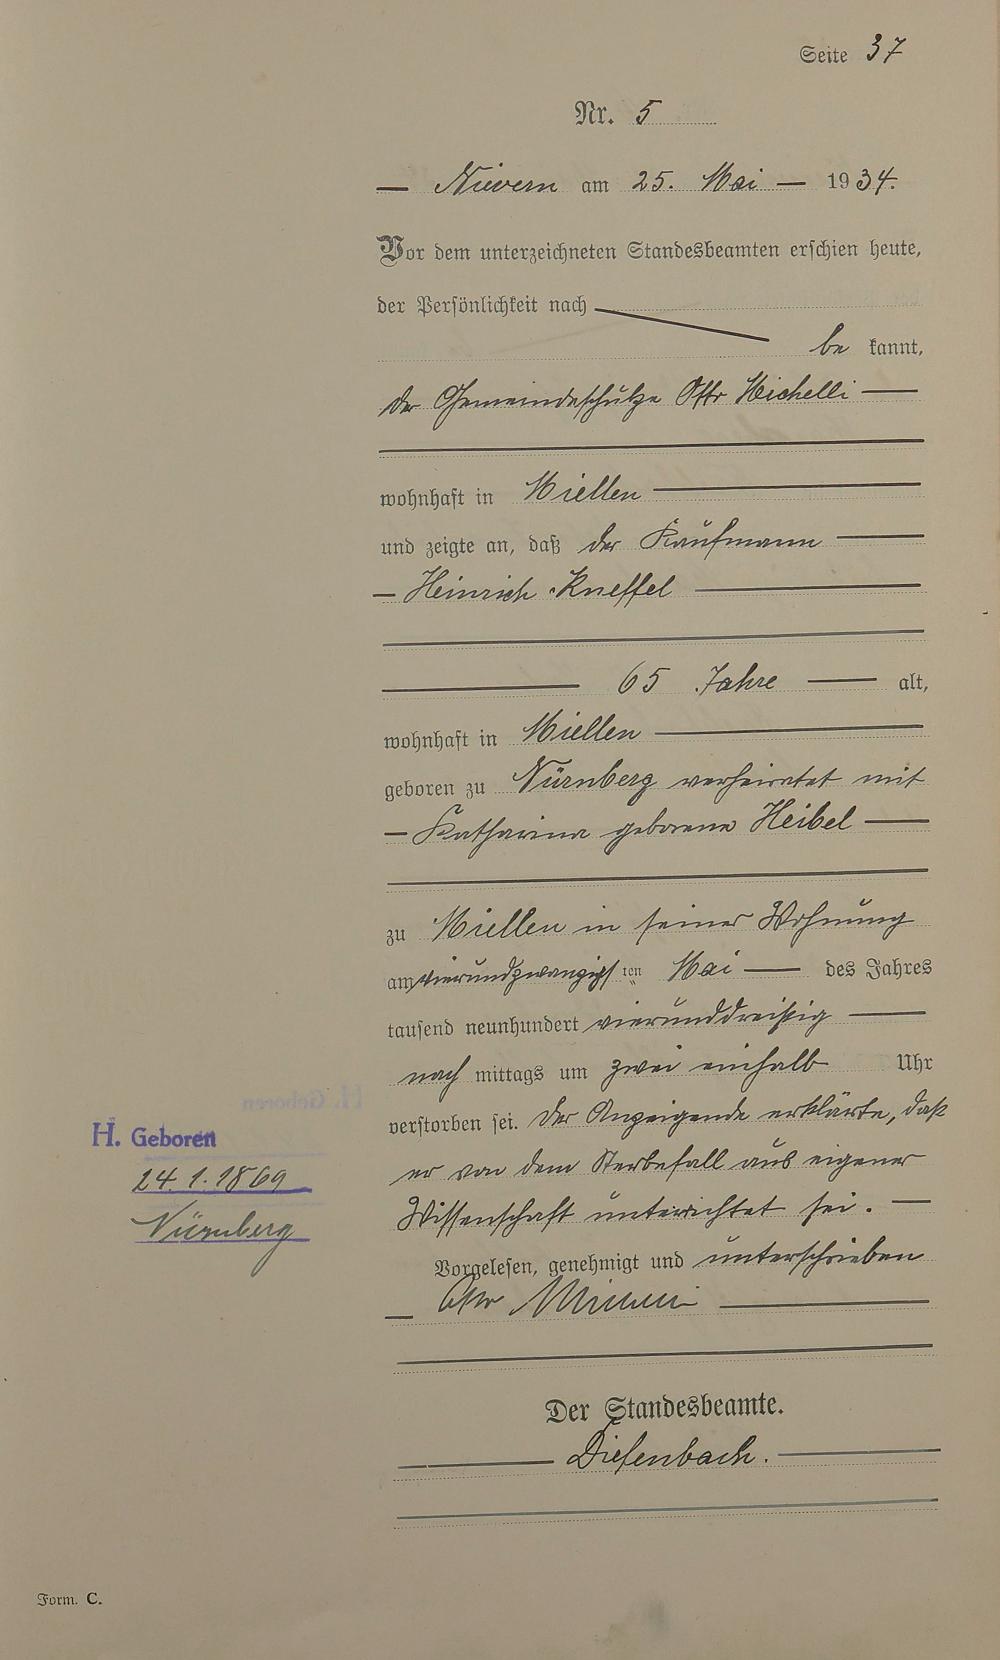 Seite 37
Nr. 5
Nievern am 25. Mai 1934.
Vor dem unterzeichneten Standesbeamten erschien heute,
der Persönlichkeit nach
be kannt,
der Gemeindeschütze Otto Michelli
wohnhaft in Miellen
und zeigte an, daß der Kaufmann
Heinrich Kneffel
65 Jahre alt,
wohnhaft in Miellen
geboren zu Nürnberg verheiratet mit
Katharina geborene Heibel
zu Miellen in seiner Wohnung
am vierundzwanzigsten Mai des Jahres
tausend neunhundert vierunddreißig
nach mittags um zwei einhalb Uhr
verstorben sei. Der Anzeigende erklärte, daß
er von dem Sterbefall aus eigener
Wissenschaft unterrichtet sei.
Vorgelesen, genehmigt und unterschrieben
Otto
Der Standesbeamte.
Diefenbach.
H. Geboren
24. 1. 1869
Nürnberg
Form. C.